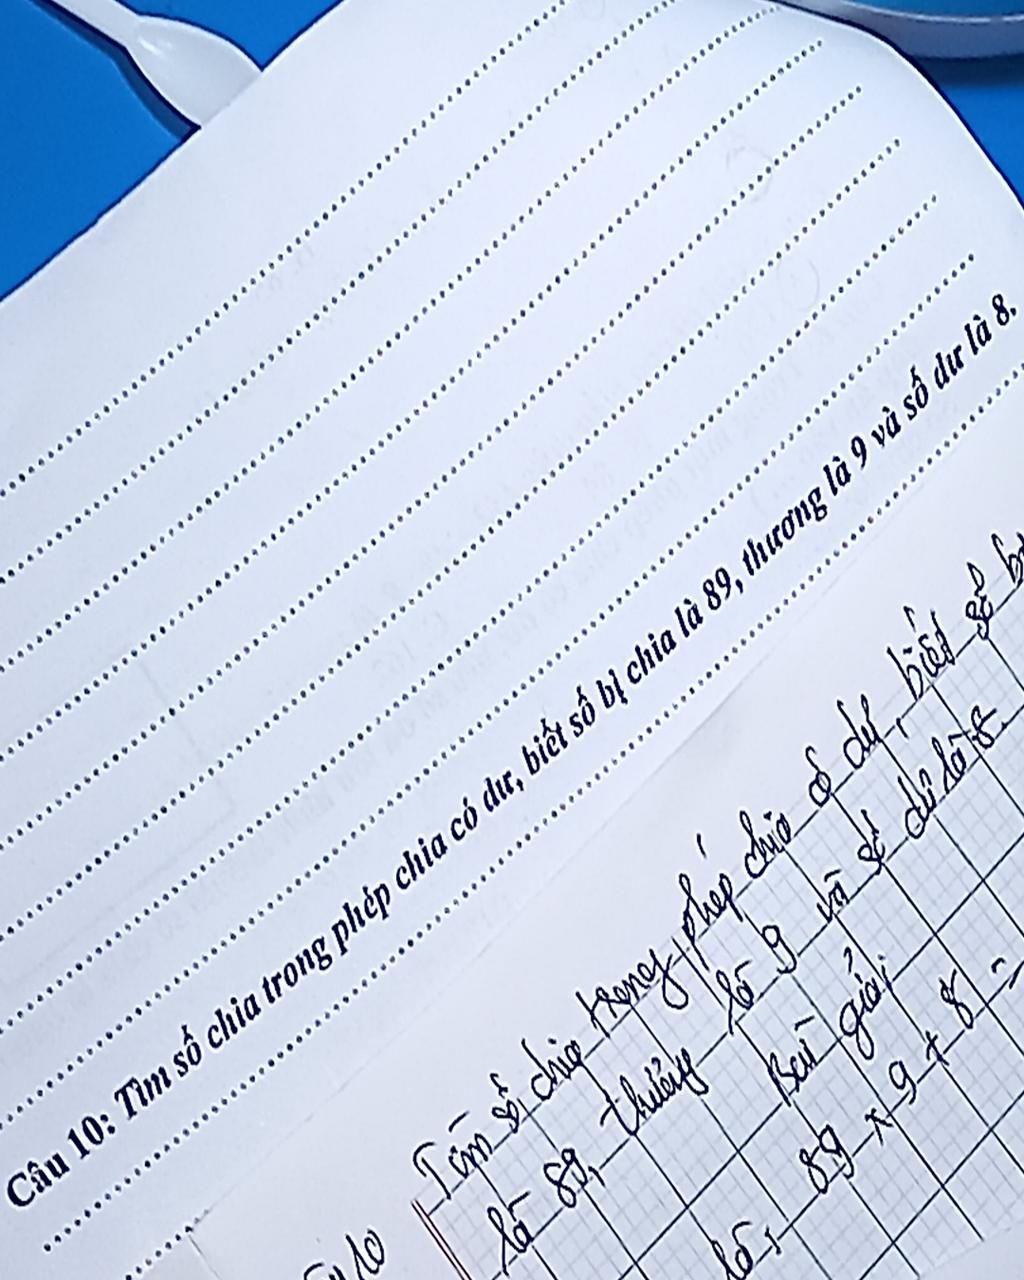 Câu 10: Tìm số chia trong phép chia có dư, biết số bị chia là 89, thương là 9 và số dư là 8.
Tìm số chia trong phép chia có dư, biết số
là 89, thương là 9 và số dư là 8.
Bài giải
là: 89 x 9 + 8 =
10